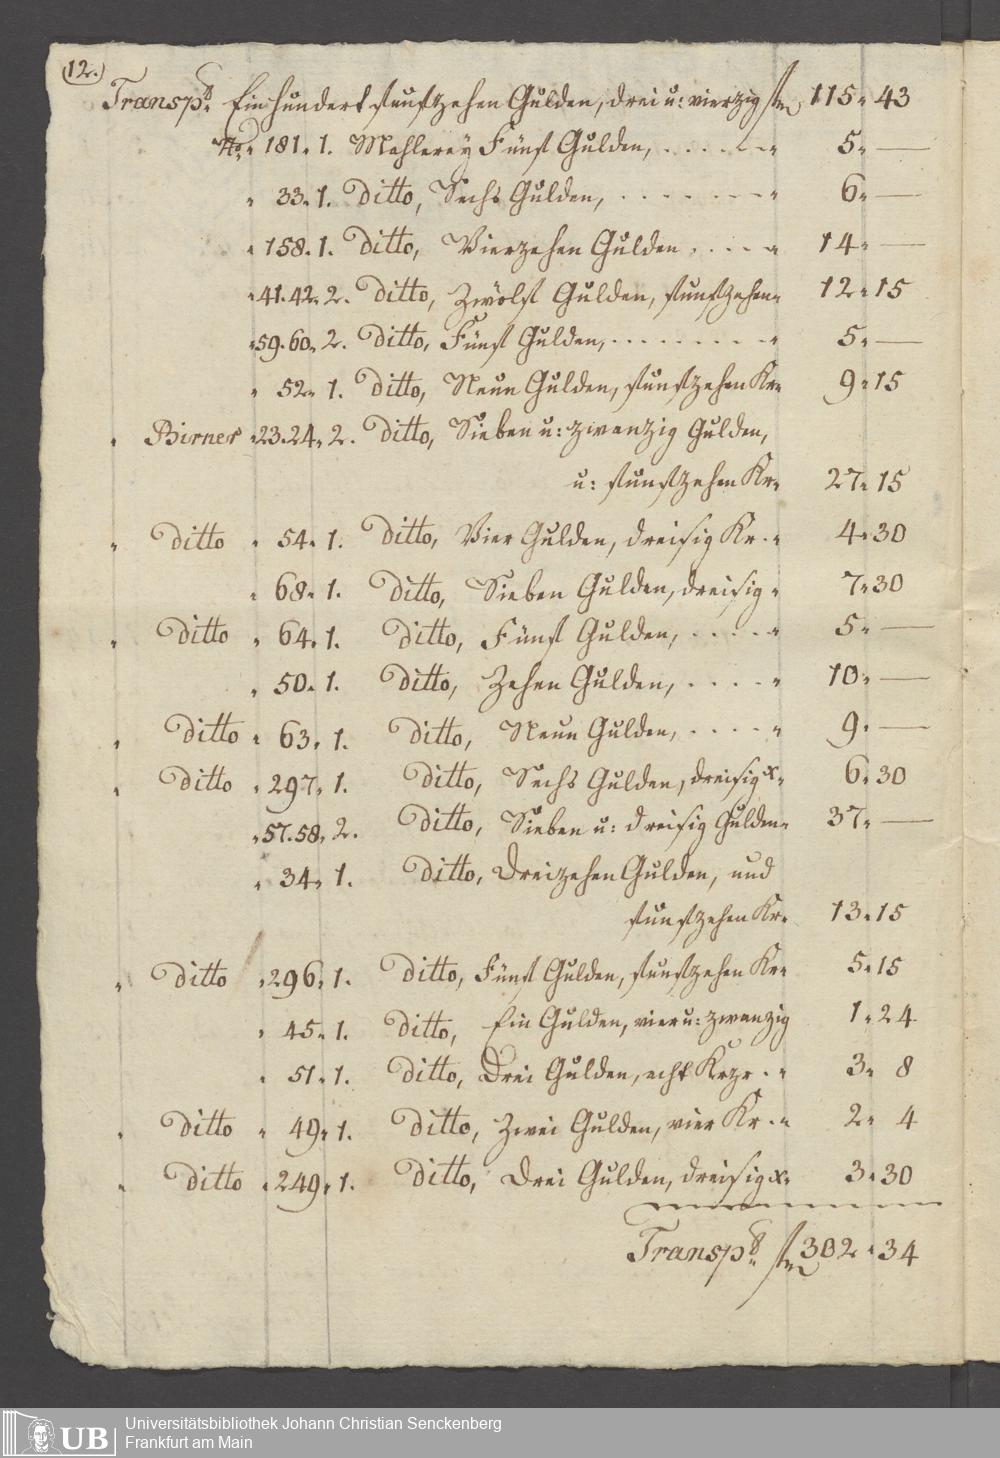 12.
Transp. Ein hundert funfzehen Gulden, drei u: vierzig f 115 " 43
No " 181 " 1. Mahlerey Fünf Gulden, . . . . . " 5 " —
" 33 " 1. Ditto, Sechs Gulden, . . . . . . . " 6 " —
" 158 " 1. Ditto, Vierzehen Gulden . . . . " 14 " —
" 41. 42 " 2. Ditto, Zwölf Gulden, funfzehen " 12 " 15
" 59. 60 " 2. Ditto, Fünf Gulden, . . . . . . . . " 5 " —
" 52 " 1. Ditto, Neun Gulden, funfzehen Kr " 9 " 15
" Birner " 23. 24 " 2. Ditto, Sieben u: zwanzig Gulden,
u: funfzehen Kr " 27 " 15
" Ditto " 54 " 1. Ditto, Vier Gulden, dreisig Kr . " 4 " 30
" 68 " 1. Ditto, Sieben Gulden, dreisig " 7 " 30
" Ditto " 64 " 1. Ditto, Fünf Gulden, . . . . . " 5 " —
" 50 " 1. Ditto, Zehen Gulden, . . . . " 10 " —
" Ditto " 63 " 1. Ditto, Neun Gulden, . . . . " 9 " —
" Ditto " 297 " 1. Ditto, Sechs Gulden, dreisig x " 6 " 30
" 57. 58 " 2. Ditto, Sieben u: dreisig Gulden " 37 " —
" 34 " 1. Ditto, Dreizehen Gulden, und
funfzehen Kr " 13 " 15
" Ditto " 296 " 1. Ditto, Fünf Gulden, funfzehen Kr " 5 " 15
" 45 " 1. Ditto, Ein Gulden, vier u: zwanzig 1 " 24
" 51 " 1. Ditto, Drei Gulden, acht Krzr . " 3 " 8
" Ditto " 49 " 1. Ditto, Zwei Gulden, vier Kr . " 2 " 4
" Ditto " 249 " 1. Ditto, Drei Gulden, dreisig x " 3 " 30
Transp. f 302 " 34
UB Universitätsbibliothek Johann Christian Senckenberg
Frankfurt am Main